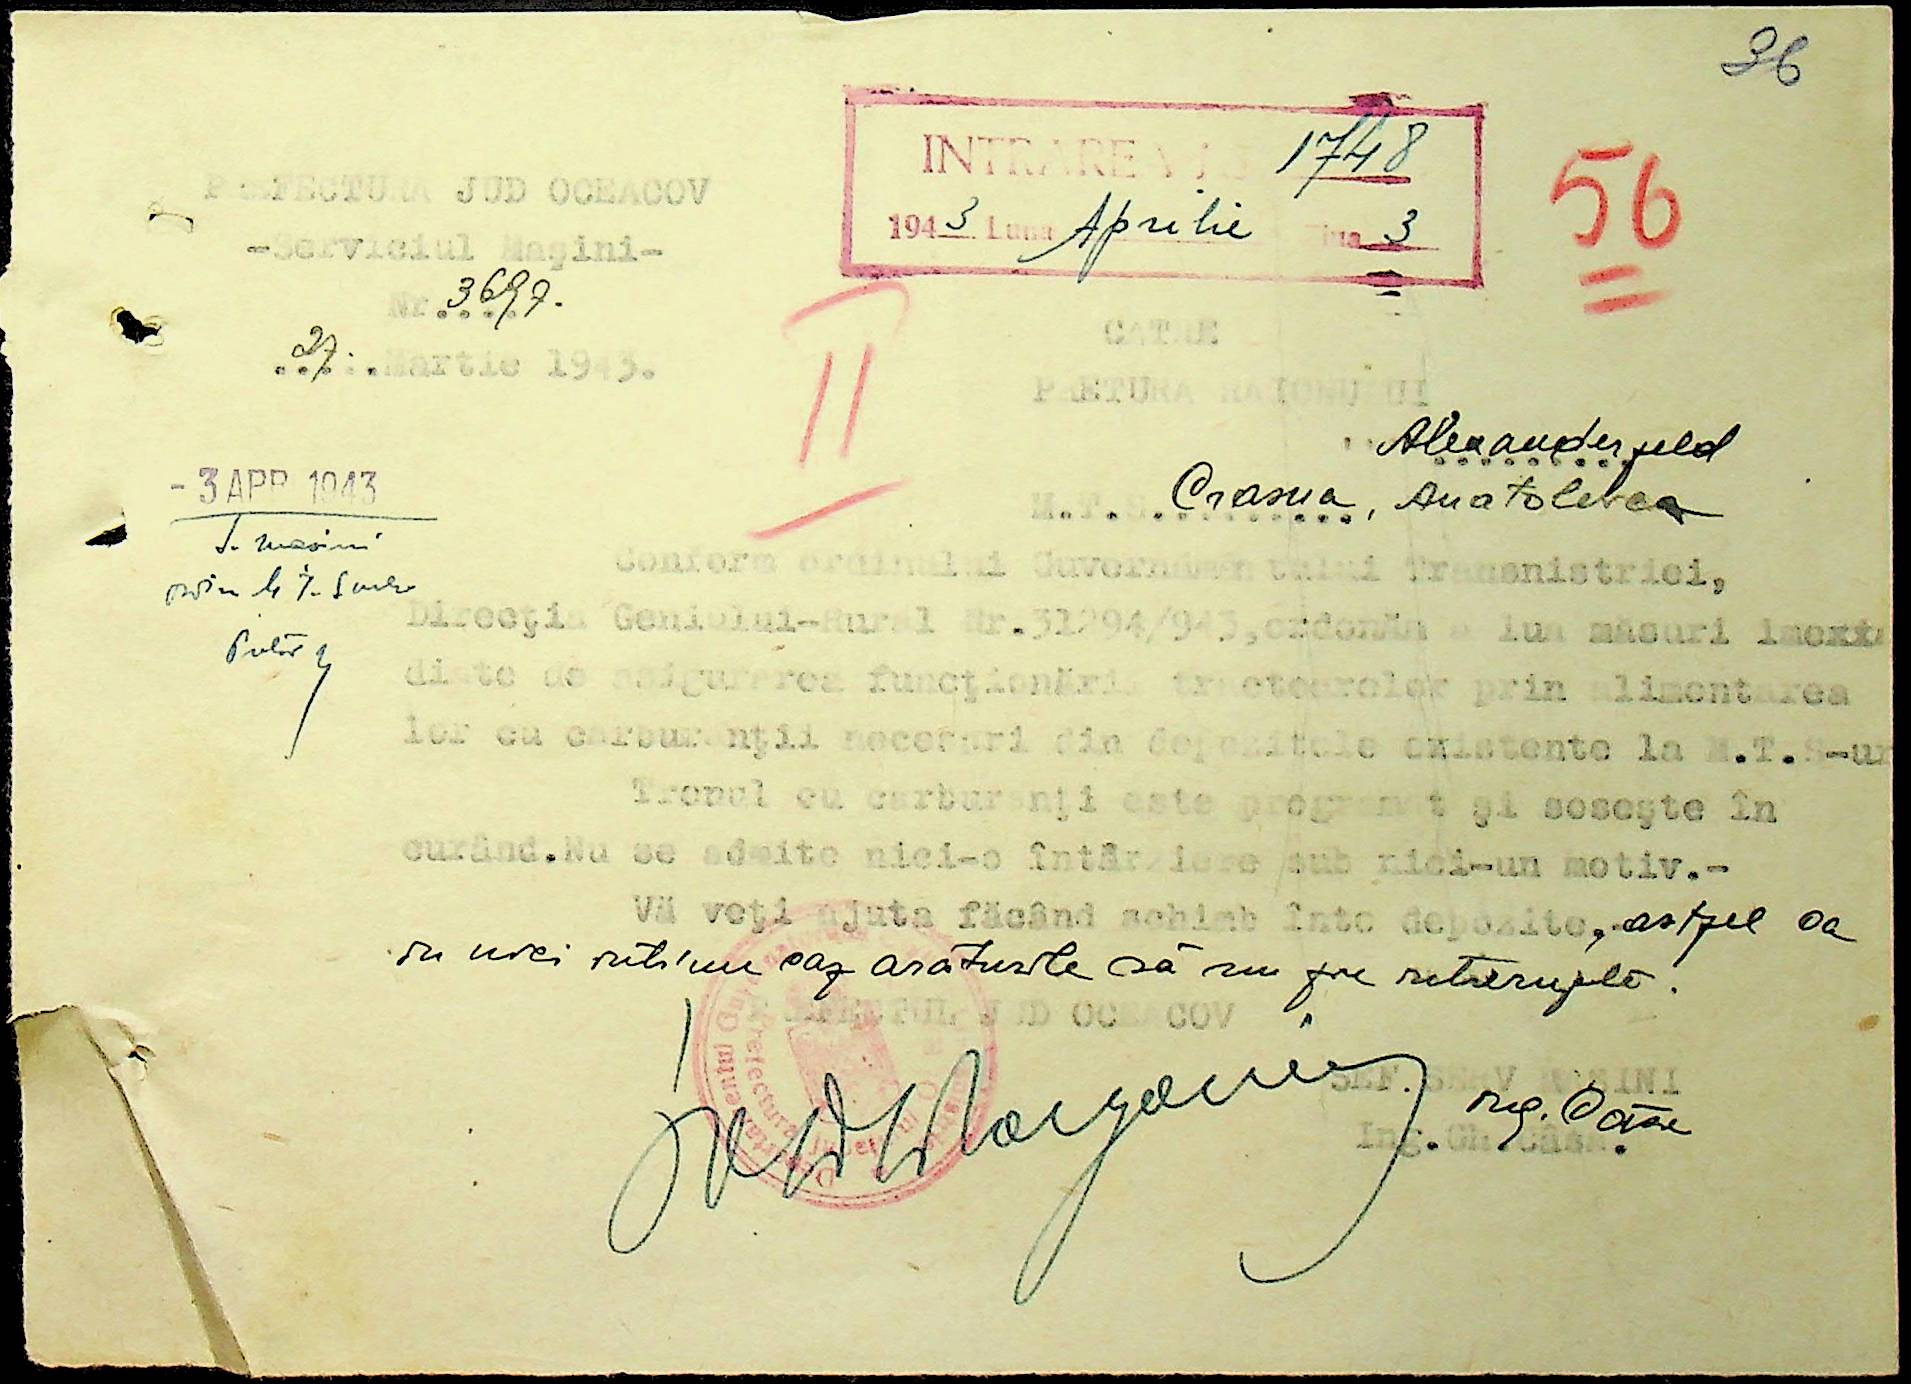 36
INTRAREA Nr 1748
1943 Luna Aprilie Ziua 3
56
PREFECTURA JUD OCEACOV
-Serviciul Maşini-
Nr. 3697.
27 Martie 1943.
II
CATRE
PRETURA RAIONULUI
Alexanderfeld
M.T.S. Crasna, Anatolevca
-3 APR 1943
S. masini
Conform ordinului Guvernământului Transnistriei,
Direcţia Geniului-Rural Nr.31294/943,ordonăm a lua măsuri imex
diate de asigurarea funcţionării tractoarelor prin alimentarea
lor cu carburanţii necesari din depozitele existente la M.T.S-ur
Trenul cu carburanţi este programat şi soseşte în
curând.Nu se admite nici-o întârziere sub nici-un motiv.-
Vă veţi ajuta făcând schimb înte depozite, astfel ca
in nici intr'un caz arăturile să nu fie intrerupte.
PREFECTUL JUD OCEACOV
SEF. SERV MASINI
ing. Oāse
Ing.Gh.